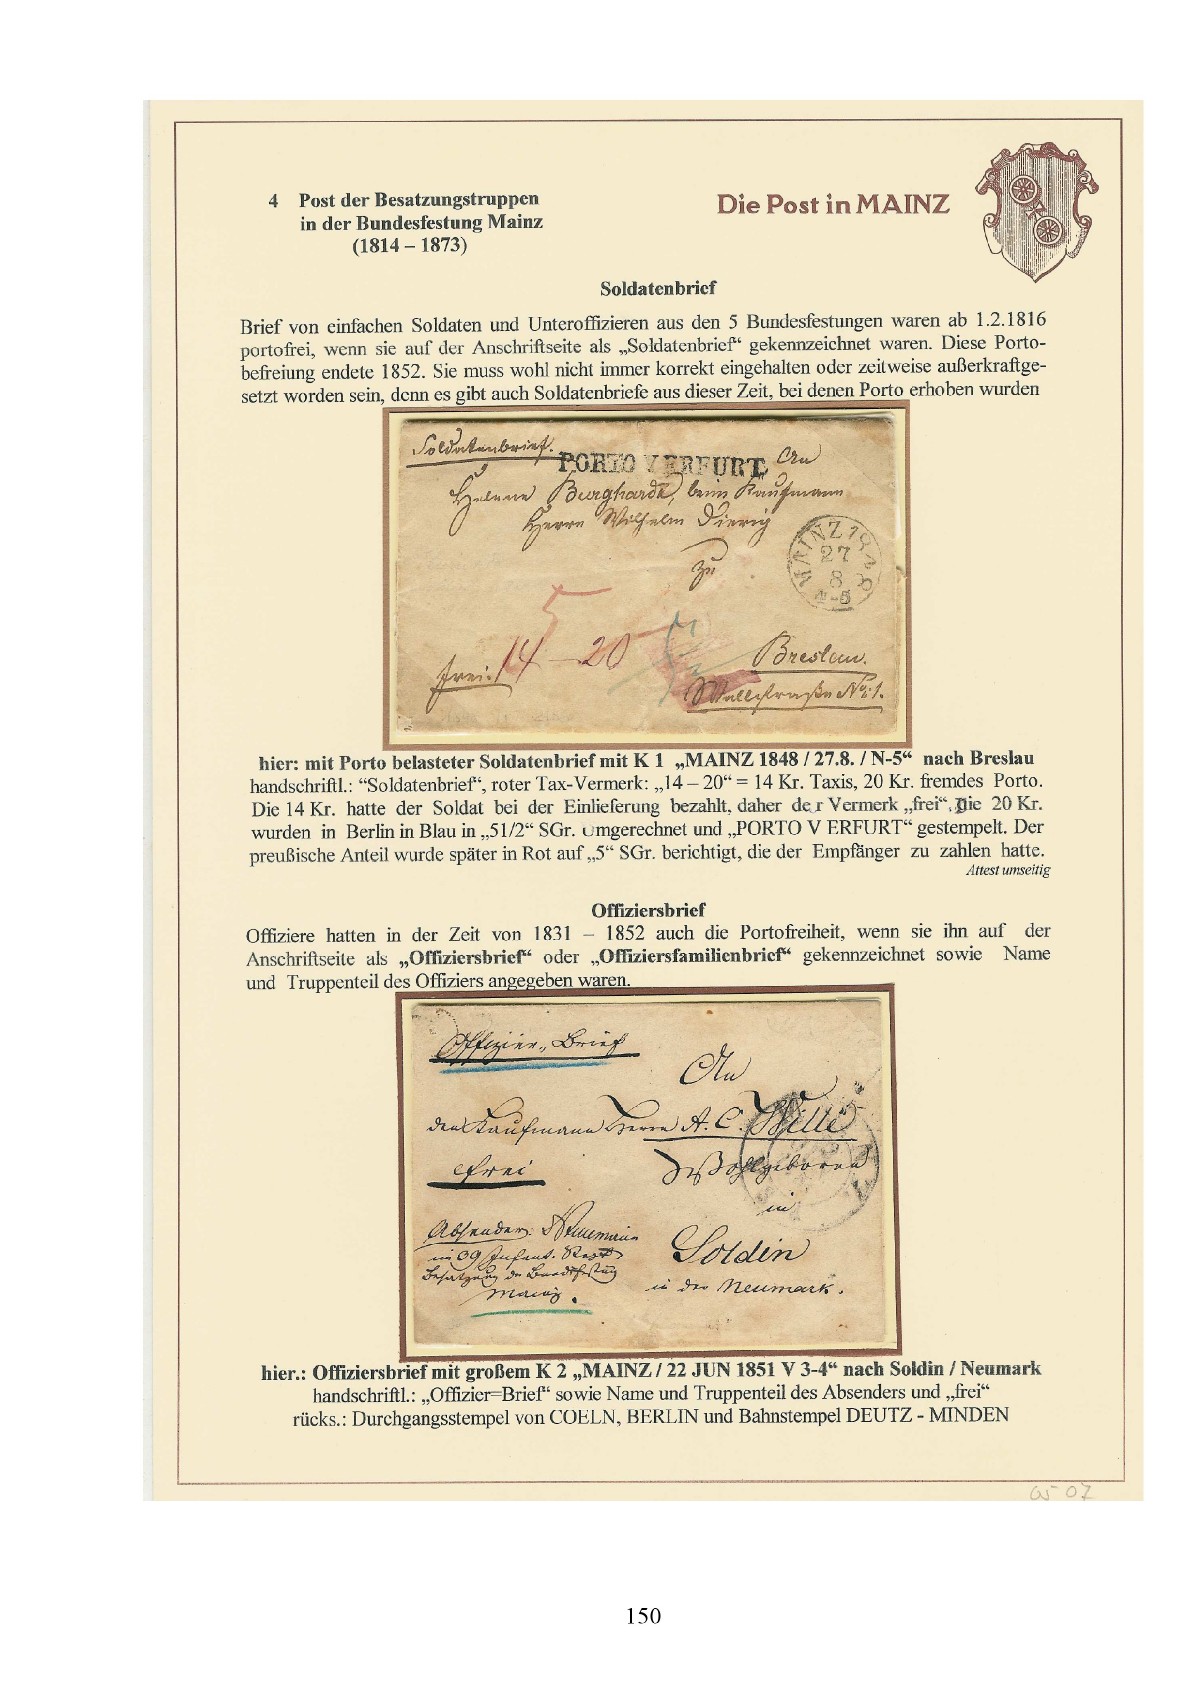 4 Post der Besatzungstruppen
in der Bundesfestung Mainz
(1814 – 1873)
Die Post in MAINZ
Soldatenbrief
Brief von einfachen Soldaten und Unteroffizieren aus den 5 Bundesfestungen waren ab 1.2.1816
portofrei, wenn sie auf der Anschriftseite als „Soldatenbrief“ gekennzeichnet waren. Diese Porto-
befreiung endete 1852. Sie muss wohl nicht immer korrekt eingehalten oder zeitweise außerkraftge-
setzt worden sein, denn es gibt auch Soldatenbriefe aus dieser Zeit, bei denen Porto erhoben wurden
Soldatenbrief.
PORTO V ERFURT
An
Helene Burghardt, beim Kaufmann
Herrn Wilhelm Dierig
zu
MAINZ 1848
27
8
N-5
5
frei: 14 – 20
Breslau.
Wallstraße No: 1.
hier: mit Porto belasteter Soldatenbrief mit K 1 „MAINZ 1848 / 27.8. / N-5“ nach Breslau
handschriftl.: “Soldatenbrief“, roter Tax-Vermerk: „14 – 20“ = 14 Kr. Taxis, 20 Kr. fremdes Porto.
Die 14 Kr. hatte der Soldat bei der Einlieferung bezahlt, daher der Vermerk „frei“. Die 20 Kr.
wurden in Berlin in Blau in „51/2“ SGr. Umgerechnet und „PORTO V ERFURT“ gestempelt. Der
preußische Anteil wurde später in Rot auf „5“ SGr. berichtigt, die der Empfänger zu zahlen hatte.
Attest umseitig
Offiziersbrief
Offiziere hatten in der Zeit von 1831 – 1852 auch die Portofreiheit, wenn sie ihn auf der
Anschriftseite als „Offiziersbrief“ oder „Offiziersfamilienbrief“ gekennzeichnet sowie Name
und Truppenteil des Offiziers angegeben waren.
Offizier=Brief
An
den Kaufmann Herrn A. C. Wille
frei
Wohlgeboren
in
Absender:
im 39 Infant. Regt
Besatzung der Bundesfestung
Mainz.
Soldin
in der Neumark.
hier.: Offiziersbrief mit großem K 2 „MAINZ / 22 JUN 1851 V 3-4“ nach Soldin / Neumark
handschriftl.: „Offizier=Brief“ sowie Name und Truppenteil des Absenders und „frei“
rücks.: Durchgangsstempel von COELN, BERLIN und Bahnstempel DEUTZ - MINDEN
07
150